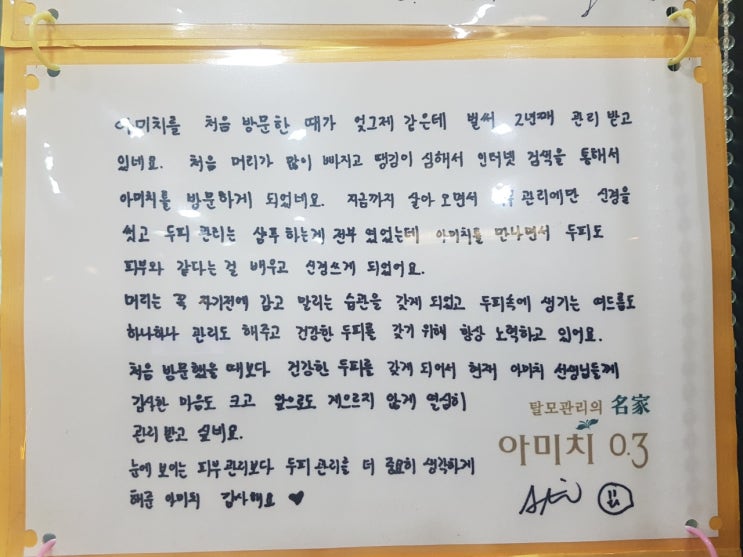 아미치를 처음 방문한 때가 엊그제 같은데 벌써 2년째 관리 받고
있네요. 처음 머리가 많이 빠지고 땡김이 심해서 인터넷 검색을 통해서
아미치를 방문하게 되었네요. 지금까지 살아 오면서 관리에만 신경을
썼고 두피 관리는 샴푸 하는게 전부 였었는데 아미치를 만나면서 두피도
피부와 같다는 걸 배우고 신경쓰게 되었어요.
머리는 꼭 자기전에 감고 말리는 습관을 갖게 되었고 두피속에 생기는 여드름도
하나하나 관리도 해주고 건강한 두피를 갖기 위해 항상 노력하고 있어요.
처음 방문했을 때보다 건강한 두피를 갖게 되어서 현재 아미치 선생님들께
감사한 마음도 크고 앞으로도 게으르지 않게 열심히
관리 받고 싶네요.
눈에 보이는 피부 관리보다 두피 관리를 더 중요히 생각하게
해준 아미치 감사해요 ♥
탈모관리의 名家
아미치 0.3